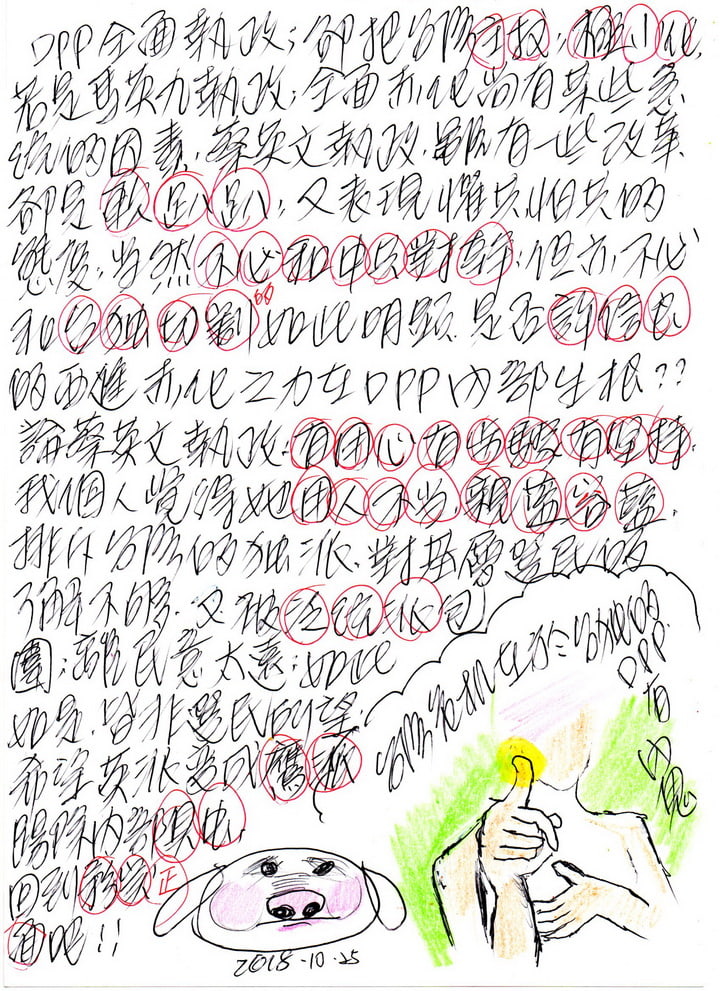 DPP全面執政;卻把台灣主权,極小化,
若是馬英九執政;全面赤化尚有某些意
統的因素,蔡英文執政,雖有一些改革
卻是軟趴趴;又表現懼共怕共的
態度,当然不必和中共對幹;但亦不必
和台独切割如此明顯,是否許信良
的西進赤化之力在DPP內部生根??
論蔡英文執政,有用心有步驟有堅持,
我個人覺得她用人不当,親藍谷藍,
排斥台灣的独派,對基層選民的
了解不够,又被 包
圍;離民意太遠;如此
如是,皆非選民所望,
希望英派变成鷹派
關內部
回到 正
面吧!!
台灣危机在於 的
DPP有
內鬼
2018-10-25